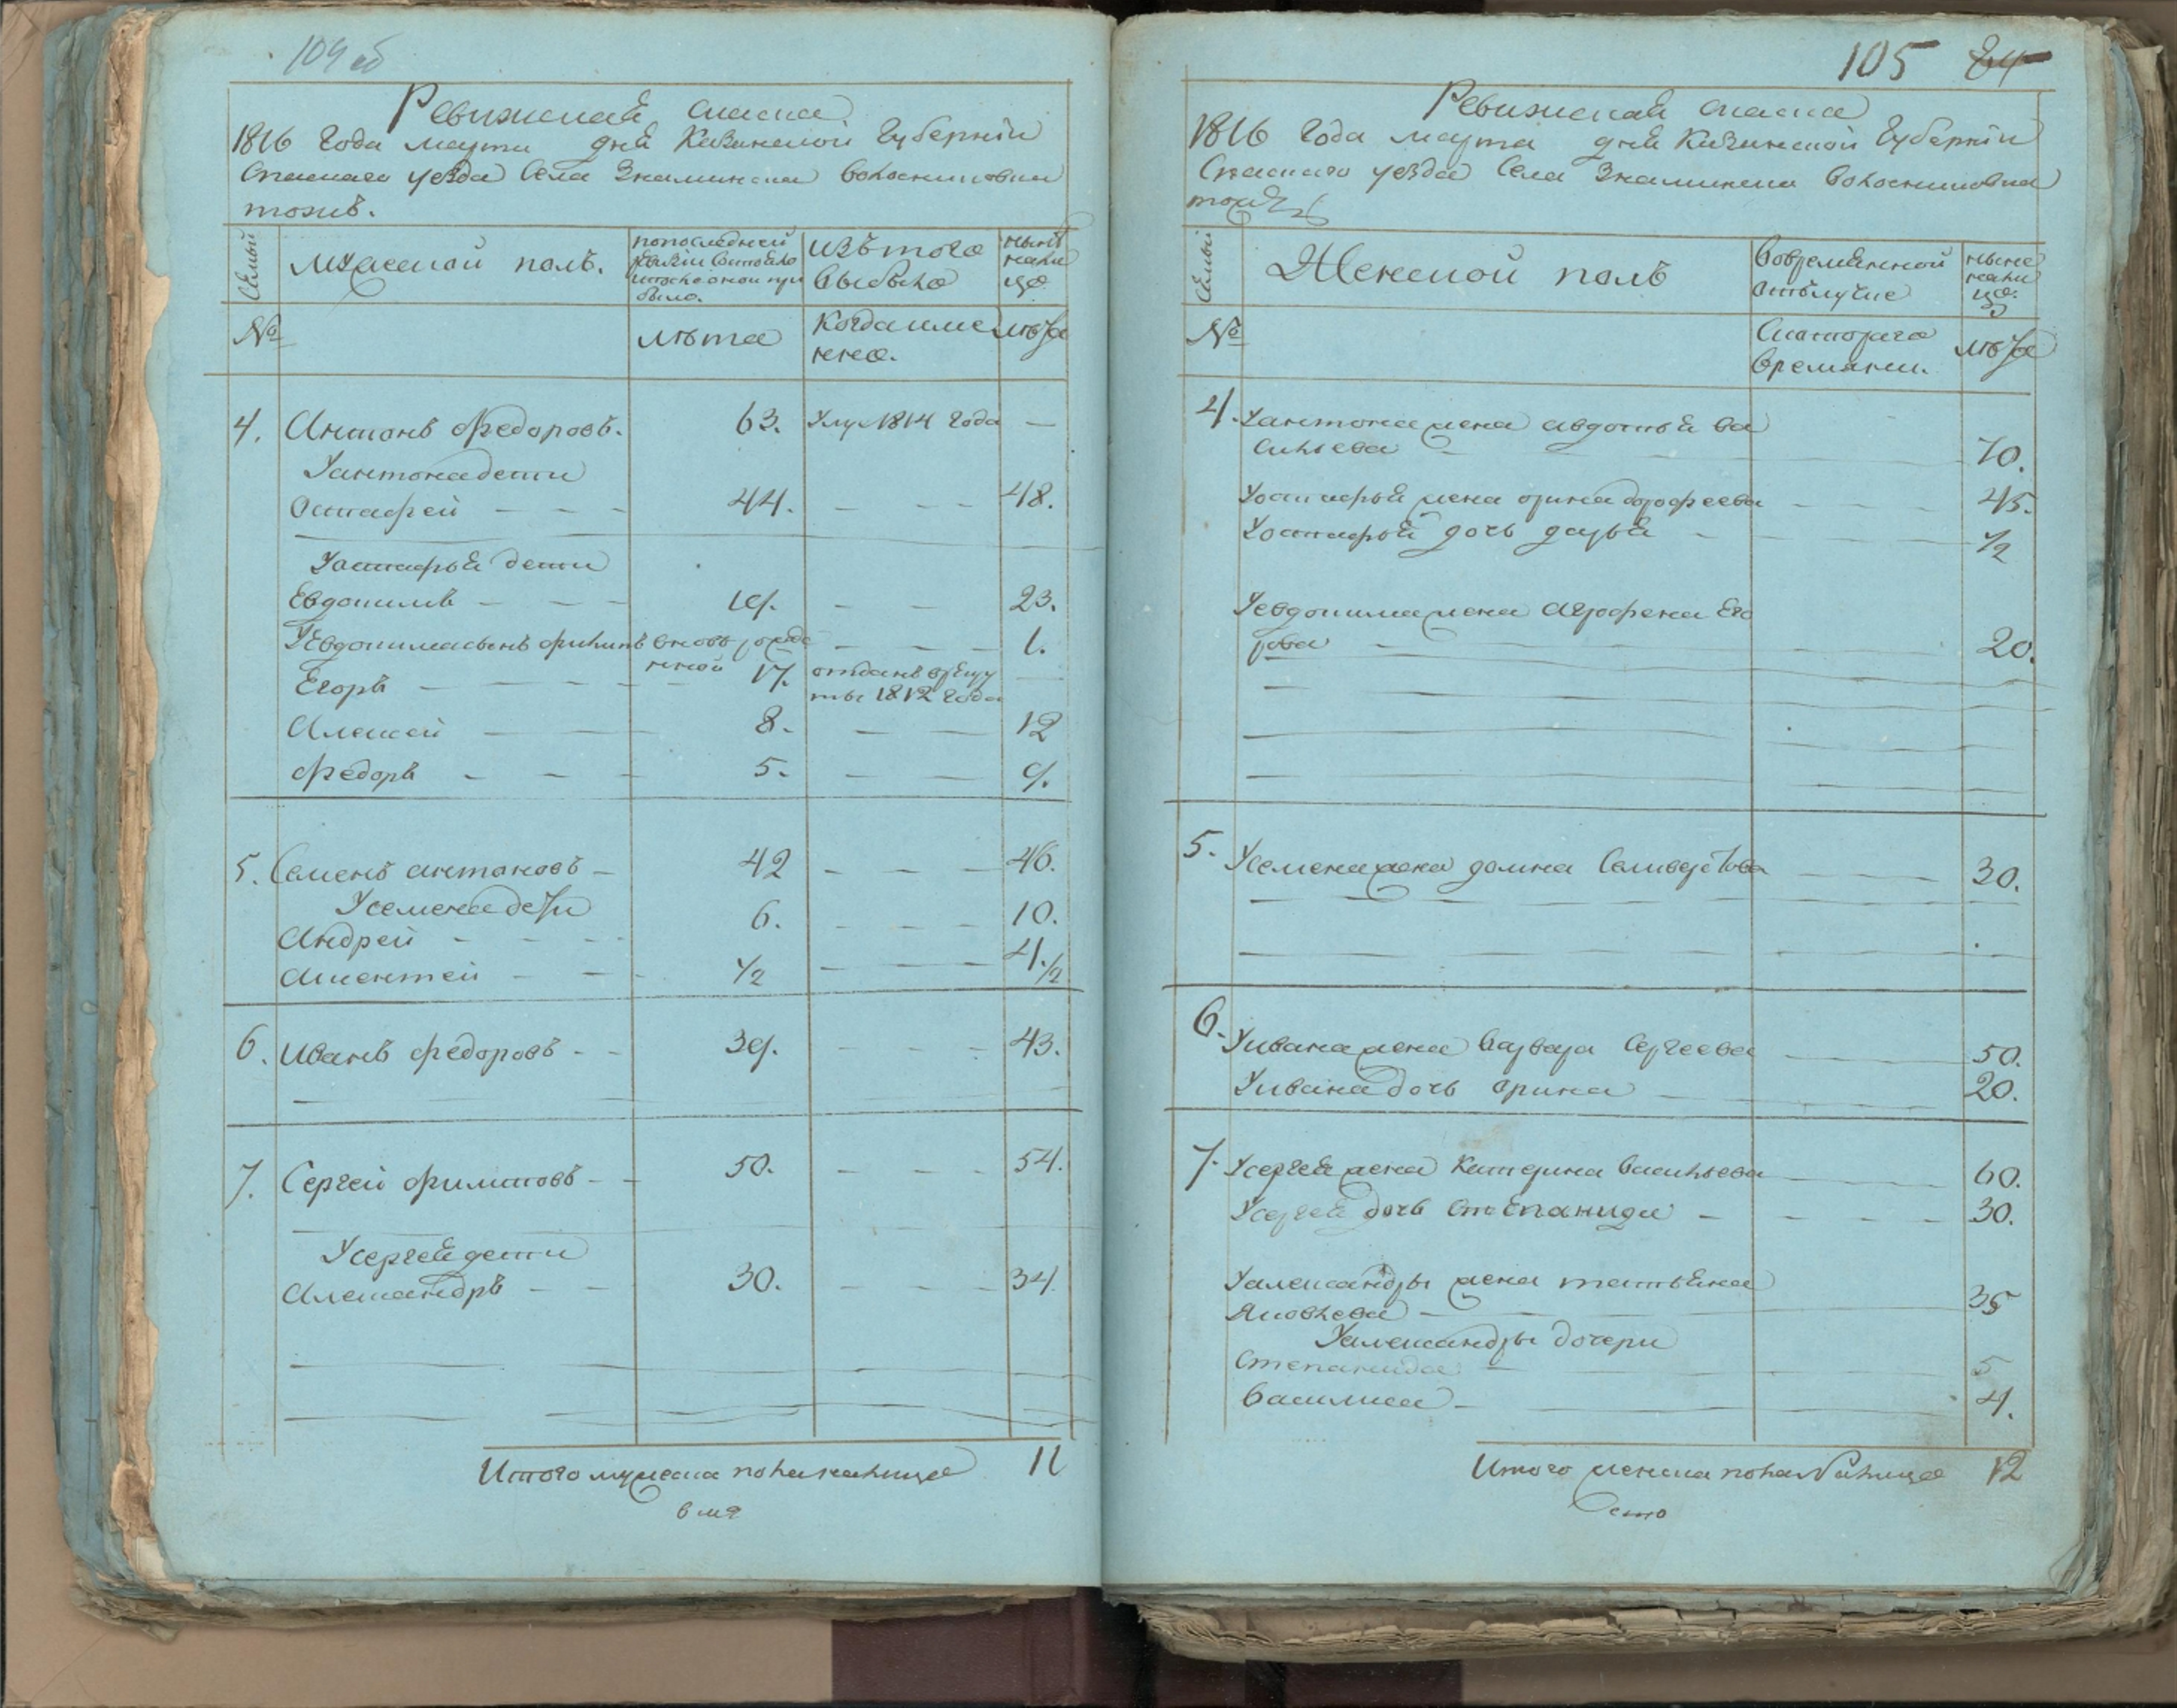 104 об
Ревижская сказка
1816 года марта дня Казанской Губернiи
Спаскаго уезда Села Знаминска
тожъ.
Семьи
Мужеской полъ.
попоследней
ревизiи состояло
изътого
выбыло
ныне
нали
цо
№
лѣта
Когда име
нно.
лѣта
4. Антонъ Федоровъ. 63. Умре 1814 года —
Уантона дети
Остафей — — — 44. — — — 48.
Уостафья дети
Евдокимъ — — — 19. — — 23.
Уевдокима сынъ филипъ вновь рожде — — — 1.
нной
Егоръ — — — — 17. отданъ врекру
ты 1812 года
Алексей — — 8. — — 12
Федоръ — — — 5. — — 9.
5. Семенъ антоновъ — 42 — — — 46.
Усемена дети
Андрей — — — 6. — — — 10.
Аксентей — — 1/2 — — — 4.1/2
6. Иванъ федоровъ — — 39. — — — 43.
7. Сергей филиповъ — — 50. — — — 54.
Усергея дети
Александръ — — 30. — — — 34
Итого мужеска пола наличное 11
105 84
Ревижская сказка
1816 Года марта дня Казанской Губернiи
Спаскаго уезда Села Знаминска
тожъ
Семьи
Женской полъ
Вовременной
отълучке
ныне
нали
цо.
№
Скоторого
времяни.
лѣта
4. Уантона жена авдотья ва
сильева — 70.
Уостафья жена орина дорофеева — — — 45.
Уостафья дочь дарья — — — 1/2
Уевдокима жена Агрофена Его
рова — — — 20.
5. Усемена жена домна Селиверстова — — — 30.
6. Уивана жена Варвара Сергеева — 50.
Уивана дочь орина — — 20.
7. Усергея жена Катерина васильева — 60.
Усергея дочь степанида — — — 30.
Уалександры жена татьяна
Яковлева — — — 35
Уалександры дочери
Степанида — — 5
Василиса — — — 4.
Итого женска пола наличное 12